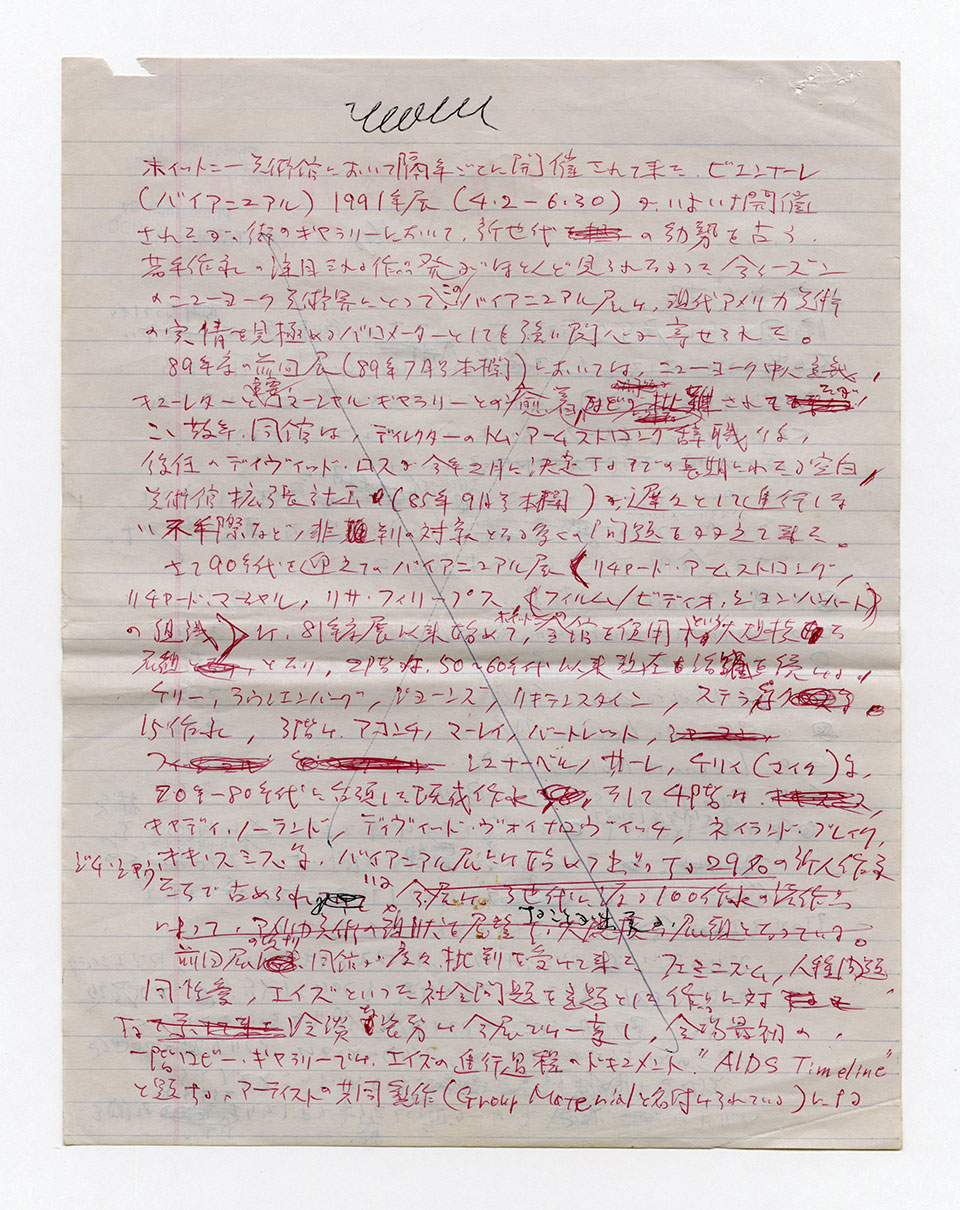 ホイットニー美術館において隔年ごとに開催されて来た、ビエンナーレ
(バイアニュアル) 1991年展 (4.2-6.30) が、いよいよ開催
された。街のギャラリーにおいて、新世代の動勢を占う、
若手作家の注目される作品発表がほとんど見られなかった今シーズン
のニューヨーク美術界にとって、このバイアニュアル展は、現代アメリカ美術
の実情を見極めるバロメーターとしても強い関心が寄せられた。
89年の前回展(89年7月号本欄)においては、ニューヨーク中心主義、
キューレターとコマーシャル・ギャラリーとの癒着、などの批難されて
ここ数年、同館は、ディレクターのトム・アームストロング辞職後、
後任のデイヴィッド・ロスが今年2月に決定するまでの長期にわたる空白、
美術館拡張計画(85年9月号本欄)が遅々として進行しな
い不手際など、非難の対象となる多くの問題をかかえて来た。
さて90年代を迎えてのバイアニュアル展(リチャード・アームストロング、
リチャード・マーシャル、リサ・フィリップス、(フィルム/ビディオ、ジョン・ハンハート)
の組織)は、81年展以来始めて、全館を使用
展組となり、2階は、50~60年代以来現在も活躍を続ける
ケリー、ラウシェンバーグ、ジョーンズ、リキテンスタイン、ステラ
15作家、3階は、アコンチ、マーレイ、バートレット、
シュナーベル、サーレ、ケリィ(マイク)ら、
70年-80年代に台頭した現代作家、そして4階は、
キャディ・ノーランド、デイヴィッド・ヴォイナロヴィッチ、ネイランド・ブレイク、
キキ・スミスら、バイアニュアル展には始めて出品する29名の新人作家
たちで占められている。今展は、3世代に渡る100作家の近作に
よって、アメリカ美術の現状を展望する 展組となっている。
前回展 同館が度々批判を受けて来た、フェミニズム、人種問題、
同性愛、エイズといった社会問題を主題とした作品に対
する冷淡な姿勢は今展では一変し、会場最初の
一階ロビー・ギャラリーでは、エイズの進行過程のドキュメント、"AIDS Timeline"
と題する、アーティストの共同製作(Group Materialと名付けられている)による